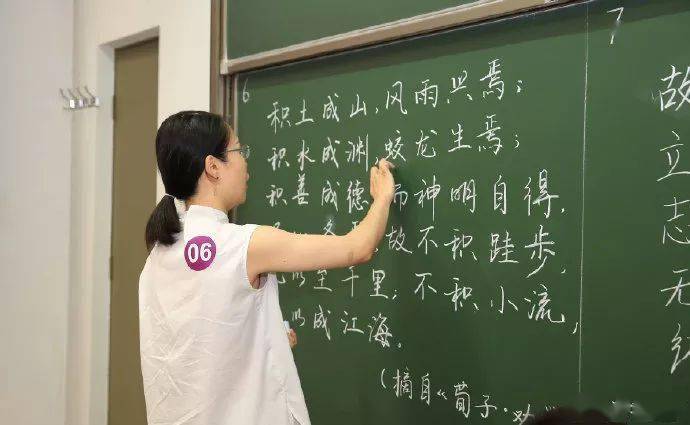 6
积土成山,风雨兴焉;
积水成渊,蛟龙生焉;
积善成德 而神明自得,
故不积跬步,
以至千里;不积小流,
以成江海。
(摘自《荀子·
7
故
立
志
无
06